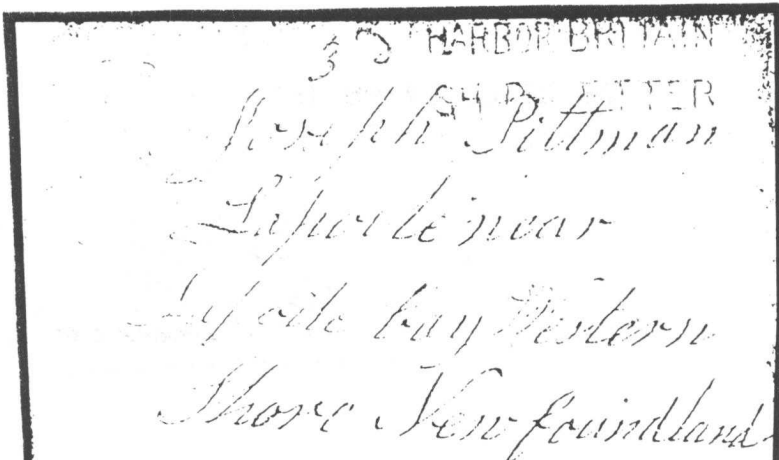 3 HARBOR BRITAIN
SHIP LETTER
Joseph Pittman
Lapoile near
Lapoile bay Western
Shore Newfoundland